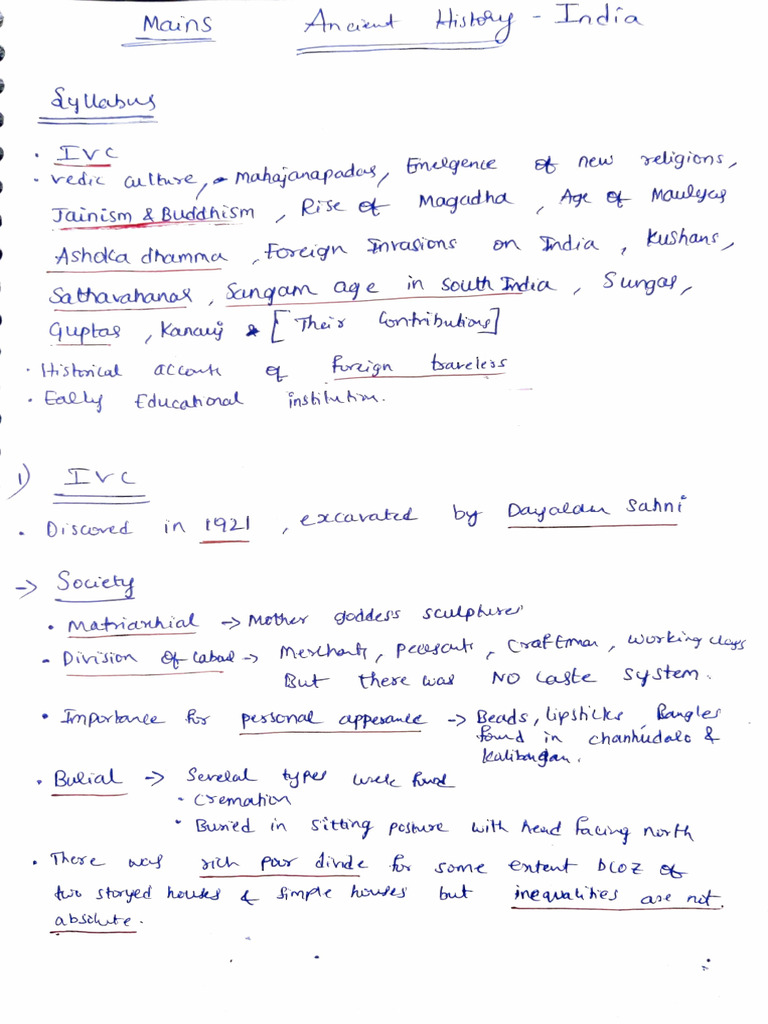 Mains Ancient History - India
Syllabus
• IVC
• Vedic culture, Mahajanapadas, Emergence of new religions,
Jainism & Buddhism, Rise of Magadha, Age of Mauryas
Ashoka dhamma, Foreign Invasions on India, Kushans,
Sathavahanas, Sangam age in south India, Sungas,
Guptas, Kanauj & [Their Contributions]
• Historical accounts of foreign travelers
• Early Educational institution.
1) IVC
• Discoved in 1921, excavated by Dayaldm Sahni
→ Society
• Matriarhial → Mother goddess sculptures
• Division of labar → Merchants, peeesants, Craftman, working class
But there was NO caste system.
• Importance for personal apperance → Beads, lipsticks, Bangles
found in chanhudalo &
Kalibangan.
• Burial → Several types were found
• Cremation
• Buried in sitting posture with head facing north
• There was rich poor divide for some extent bcoz of
two storyed houses & simple houses but inequalities are not
absolute.